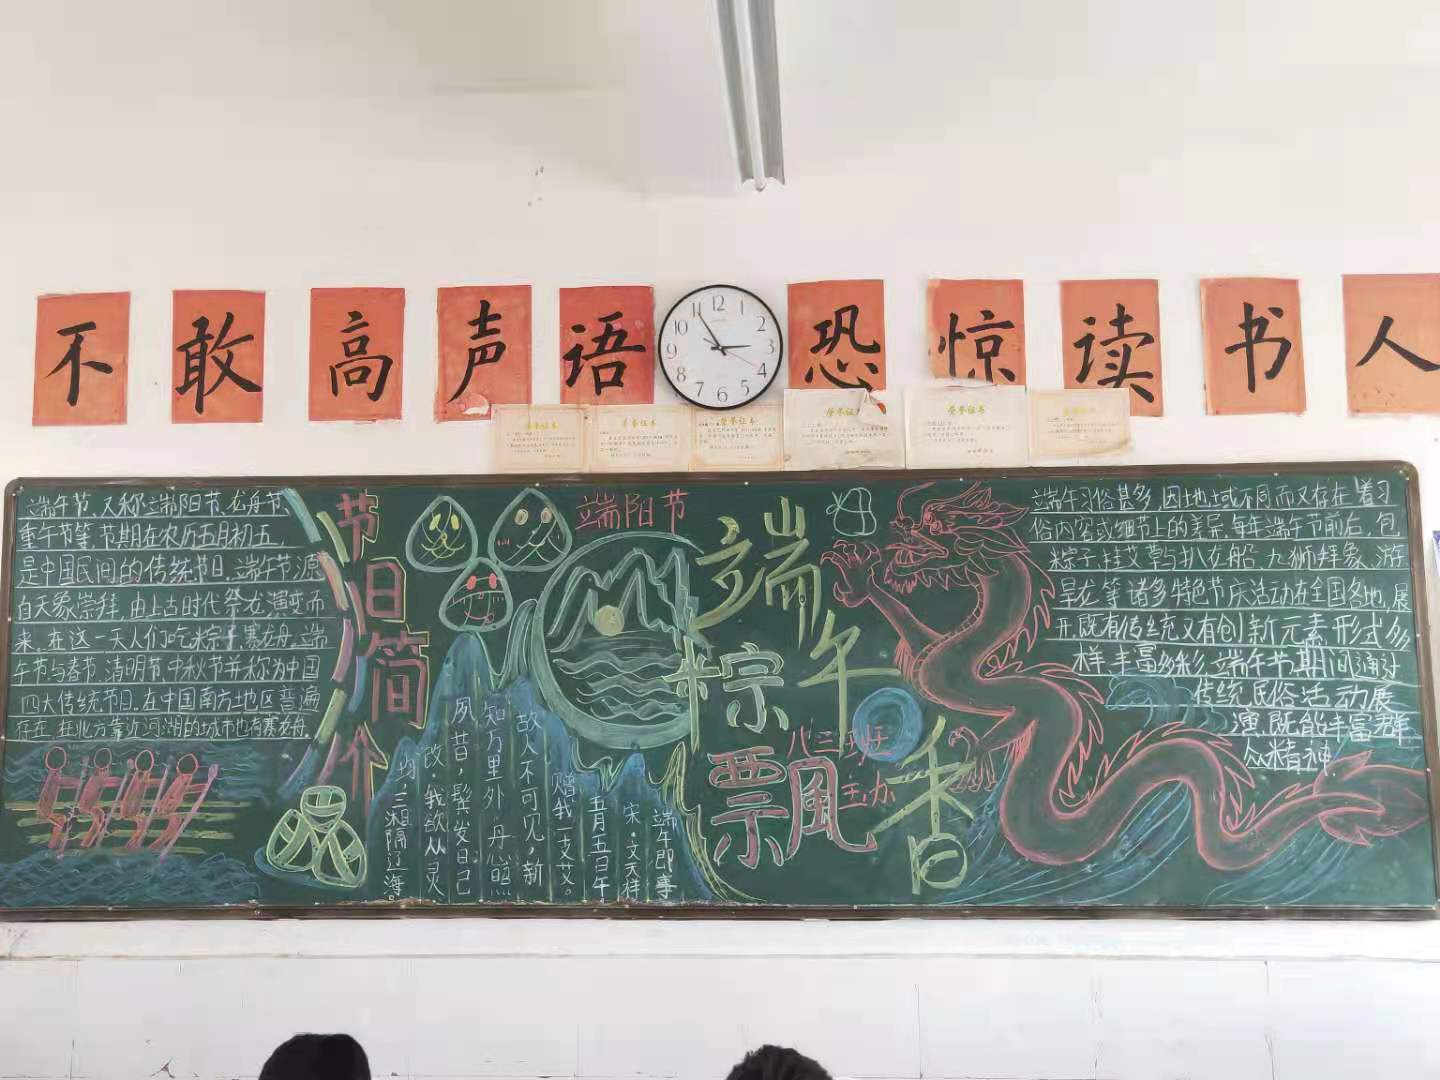 不敢高声语 恐惊读书人
12
1
2
3
4
5
6
7
8
9
10
11
荣誉证书
荣誉证书
荣誉证书
荣誉证书
荣誉证书
荣誉证书
端午节，又称端阳节、龙舟节、
重午节等，节期在农历五月初五，
是中国民间的传统节日。端午节源
自天象崇拜，由上古时代祭龙演变而
来。在这一天人们吃粽子、赛龙舟。端
午节与春节、清明节、中秋节并称为中国
四大传统节日。在中国南方地区普遍
存在，在北方靠近河湖的城市也有赛龙舟。
节日简介
端阳节
端午即事
宋·文天祥
五月五日午，
赠我一支艾。
故人不可见，新
知万里外。丹心照
夙昔，鬓发日已
改。我欲从灵
均，三湘隔辽海。
端午
粽
飘香
八三班
主办
端午习俗甚多，因地域不同而又存在着习
俗内容或细节上的差异。每年端午节前后，包
粽子、挂艾草、扒龙船、九狮拜象、游
旱龙等诸多特色节庆活动在全国各地展
开，既有传统又有创新元素，形式多
样丰富多彩。端午节期间通过
传统民俗活动展
演，既能丰富群
众精神